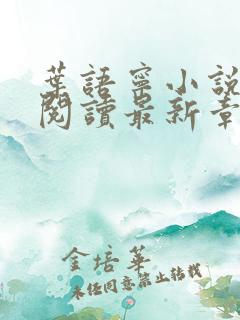 葉語寧小說
閱讀最新章
金培華
未經同意禁止轉載